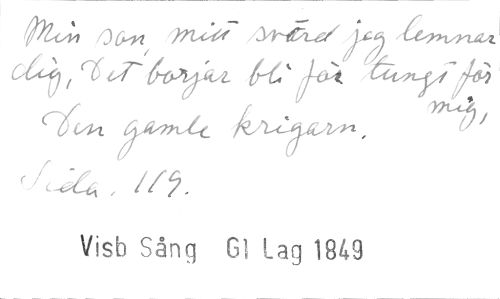 Min son, mitt svärd jag lemnar
dig, Det borjar bli för tungt för
mig,
Den gamle krigarn.
Sida. 119.
Visb Sång Gl Lag 1849